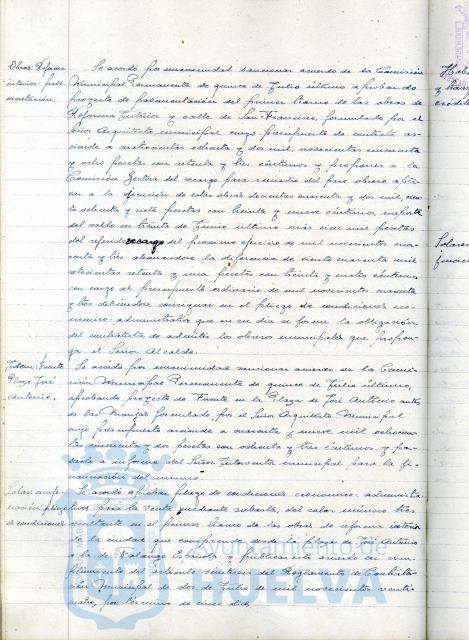 Obras Reforma
interior: pavi-
mentación.
Se acordó por unanimidad sancionar acuerdo de la Comisión
Municipal Permanente de quince de Julio último aprobando
proyecto de pavimentación del primer tramo de las obras de
Reforma Interior y calle de San Francisco, formulado por el
Señor Arquitecto municipal cuyo presupuesto de contrata as-
ciende a cuatrocientas ochenta y dos mil, novecientas cincuenta
y ocho pesetas con setenta y tres céntimos y proponer a la
Comisión Gestora del recargo para remedio del paro obrero apli-
can a la ejecución de estas obras doscientas cuarenta y dos mil, cien-
to ochenta y siete pesetas con treinta y nueve céntimos, importe
del saldo en treinta de Junio último más cien mil pesetas
del referido recargo del próximo ejercicio de mil novecientos cua-
renta y tres abonándose la diferencia de ciento cuarenta mil
setecientas setenta y una pesetas con treinta y cuatro céntimos
con cargo al presupuesto ordinario de mil novecientos cuarenta
y tres debiéndose consignar en el pliego de condiciones eco-
nómico-administrativas que en su día se forme la obligación
del contratista de admitir los obreros municipales que propon-
ga el Señor Alcalde.
Fuente
Plaza José
Antonio.
Se acordó por unanimidad sancionar acuerdo de la Comi-
sión Municipal Permanente de quince de Julio último,
aprobando proyecto de Fuente en la Plaza de José Antonio antes
de las Monjas formulado por el Señor Arquitecto Municipal
cuyo presupuesto asciende a cuarenta y nueve mil setecien-
tas cincuenta y dos pesetas con ochenta y tres céntimos y pa-
sarlo a informe del Señor Interventor municipal para la fi-
nanciación del mismo.
pliego
de condiciones
Se acordó aprobar pliego de condiciones económico-administra-
tivas para la venta mediante subasta, del solar número tres
resultante en el primer tramo de las obras de reforma interior
de la ciudad que comprende desde la plaza de José Antonio
a la de Falange Española y publicar este acuerdo en cum-
plimiento del artículo veintiséis del Reglamento de Contrata-
ción Municipal de dos de Julio de mil novecientos veinti-
cuatro, por término de cinco días.
Solares
Ayuntamiento de
HUELVA